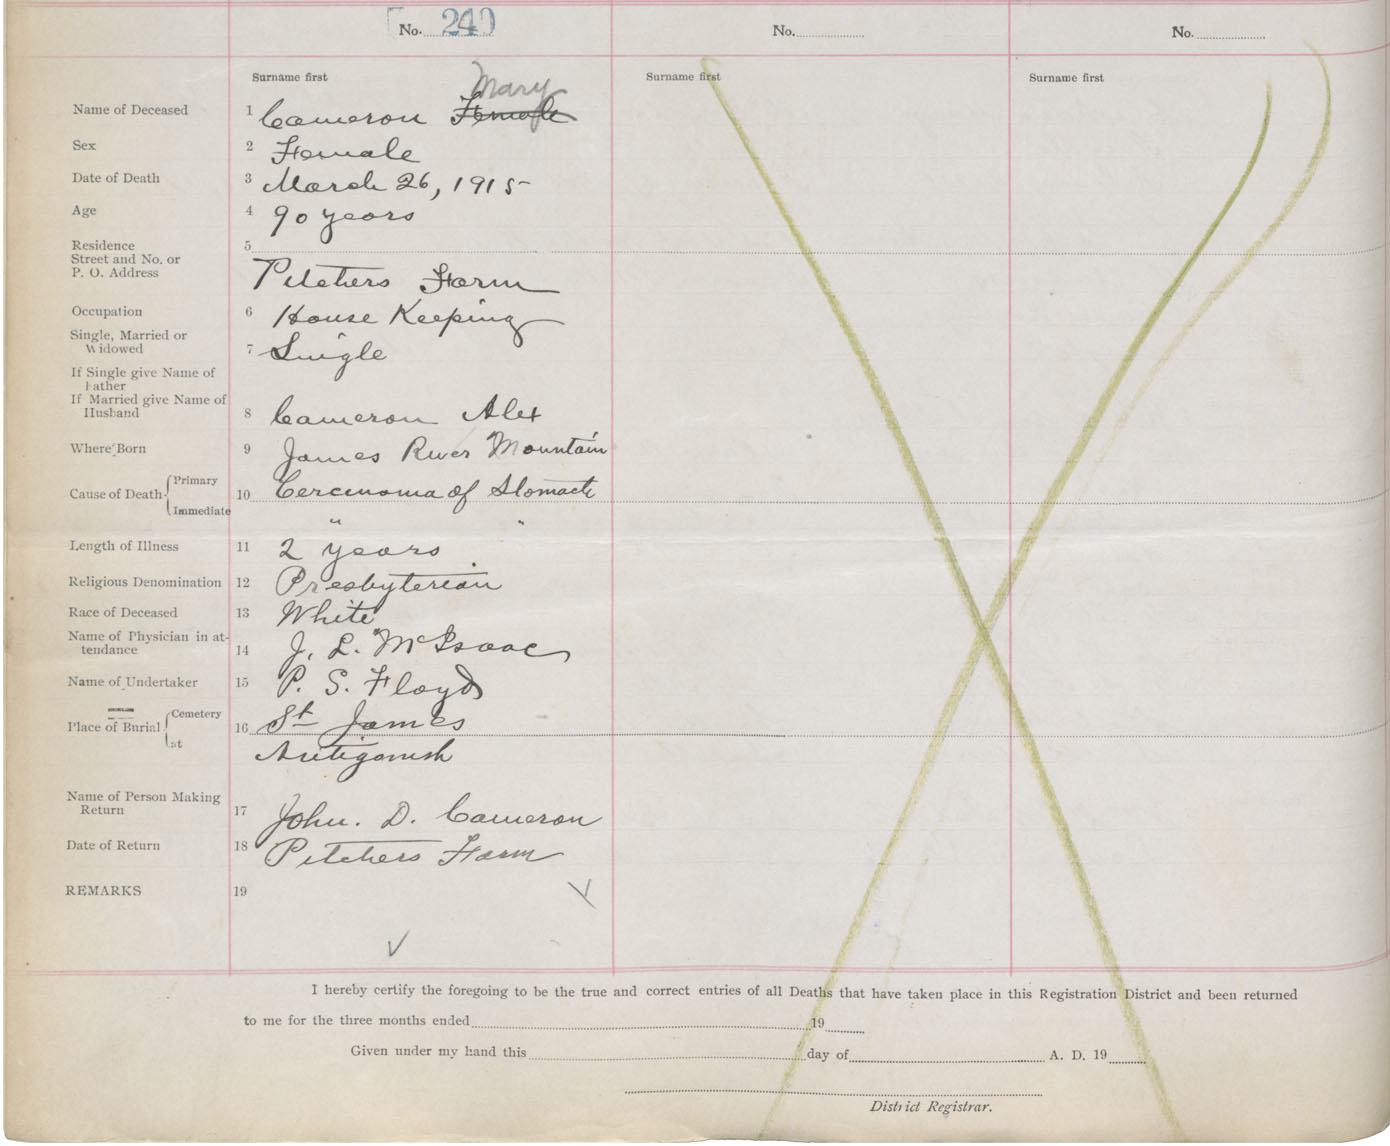 No. 240 No. No.
Surname first Surname first Surname first
Mary
Name of Deceased 1 Cameron Female
Sex 2 Female
Date of Death 3 March 26, 1915
Age 4 90 years
Residence 5
Street and No. or
P. O. Address Pitchers Farm
Occupation 6 House Keeping
Single, Married or
Widowed 7 Single
If Single give Name of
Father
If Married give Name of
Husband 8 Cameron Alex
Where Born 9 James River Mountain
Primary
Cause of Death 10 Cercinoma of Stomach
Immediate " "
Length of Illness 11 2 years
Religious Denomination 12 Presbyterian
Race of Deceased 13 White
Name of Physician in at-
tendance 14 J. L. McIsaac
Name of Undertaker 15 P. S. Floyd
Cemetery
Place of Burial 16 St James
at Antigonish
Name of Person Making
Return 17 John. D. Cameron
Date of Return 18 Pitchers Farm
REMARKS 19
I hereby certify the foregoing to be the true and correct entries of all Deaths that have taken place in this Registration District and been returned
to me for the three months ended 19
Given under my hand this day of A. D. 19
District Registrar.